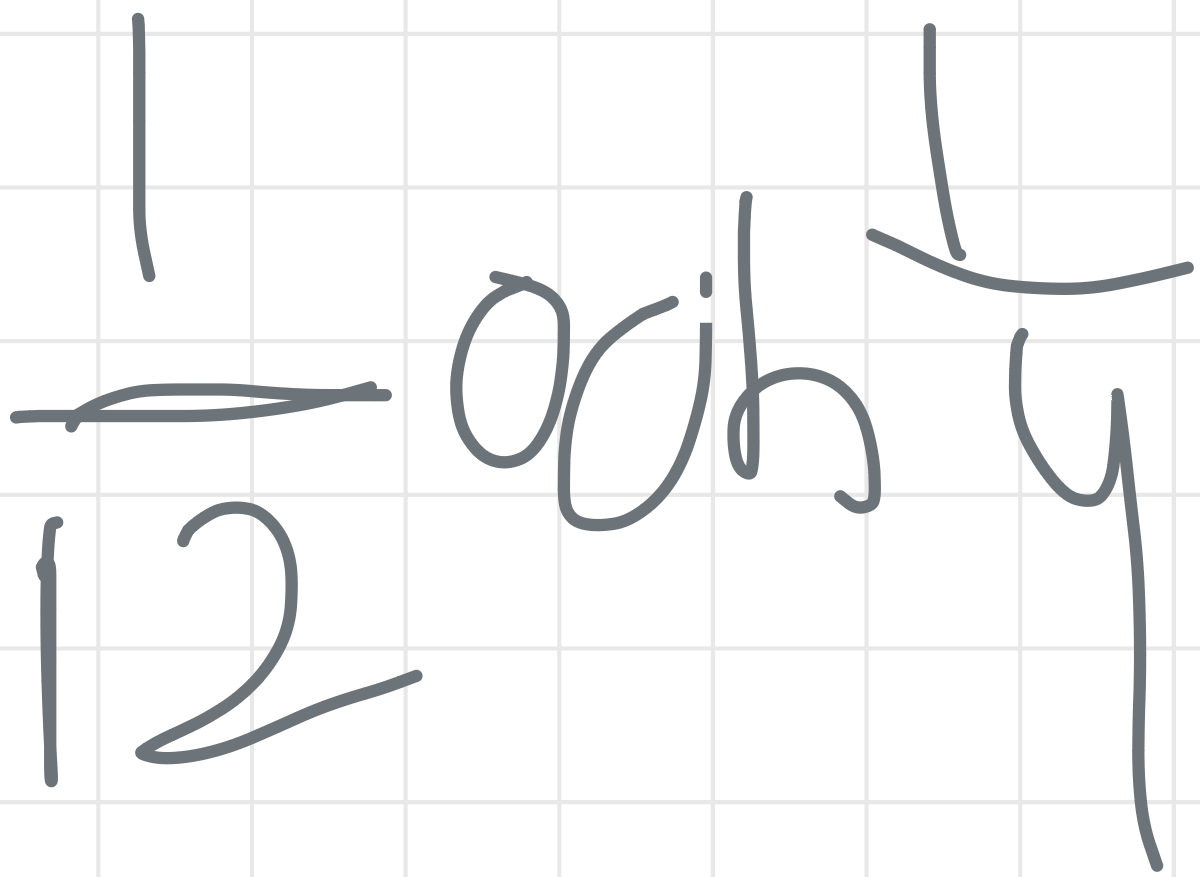 1/12 och 1/4